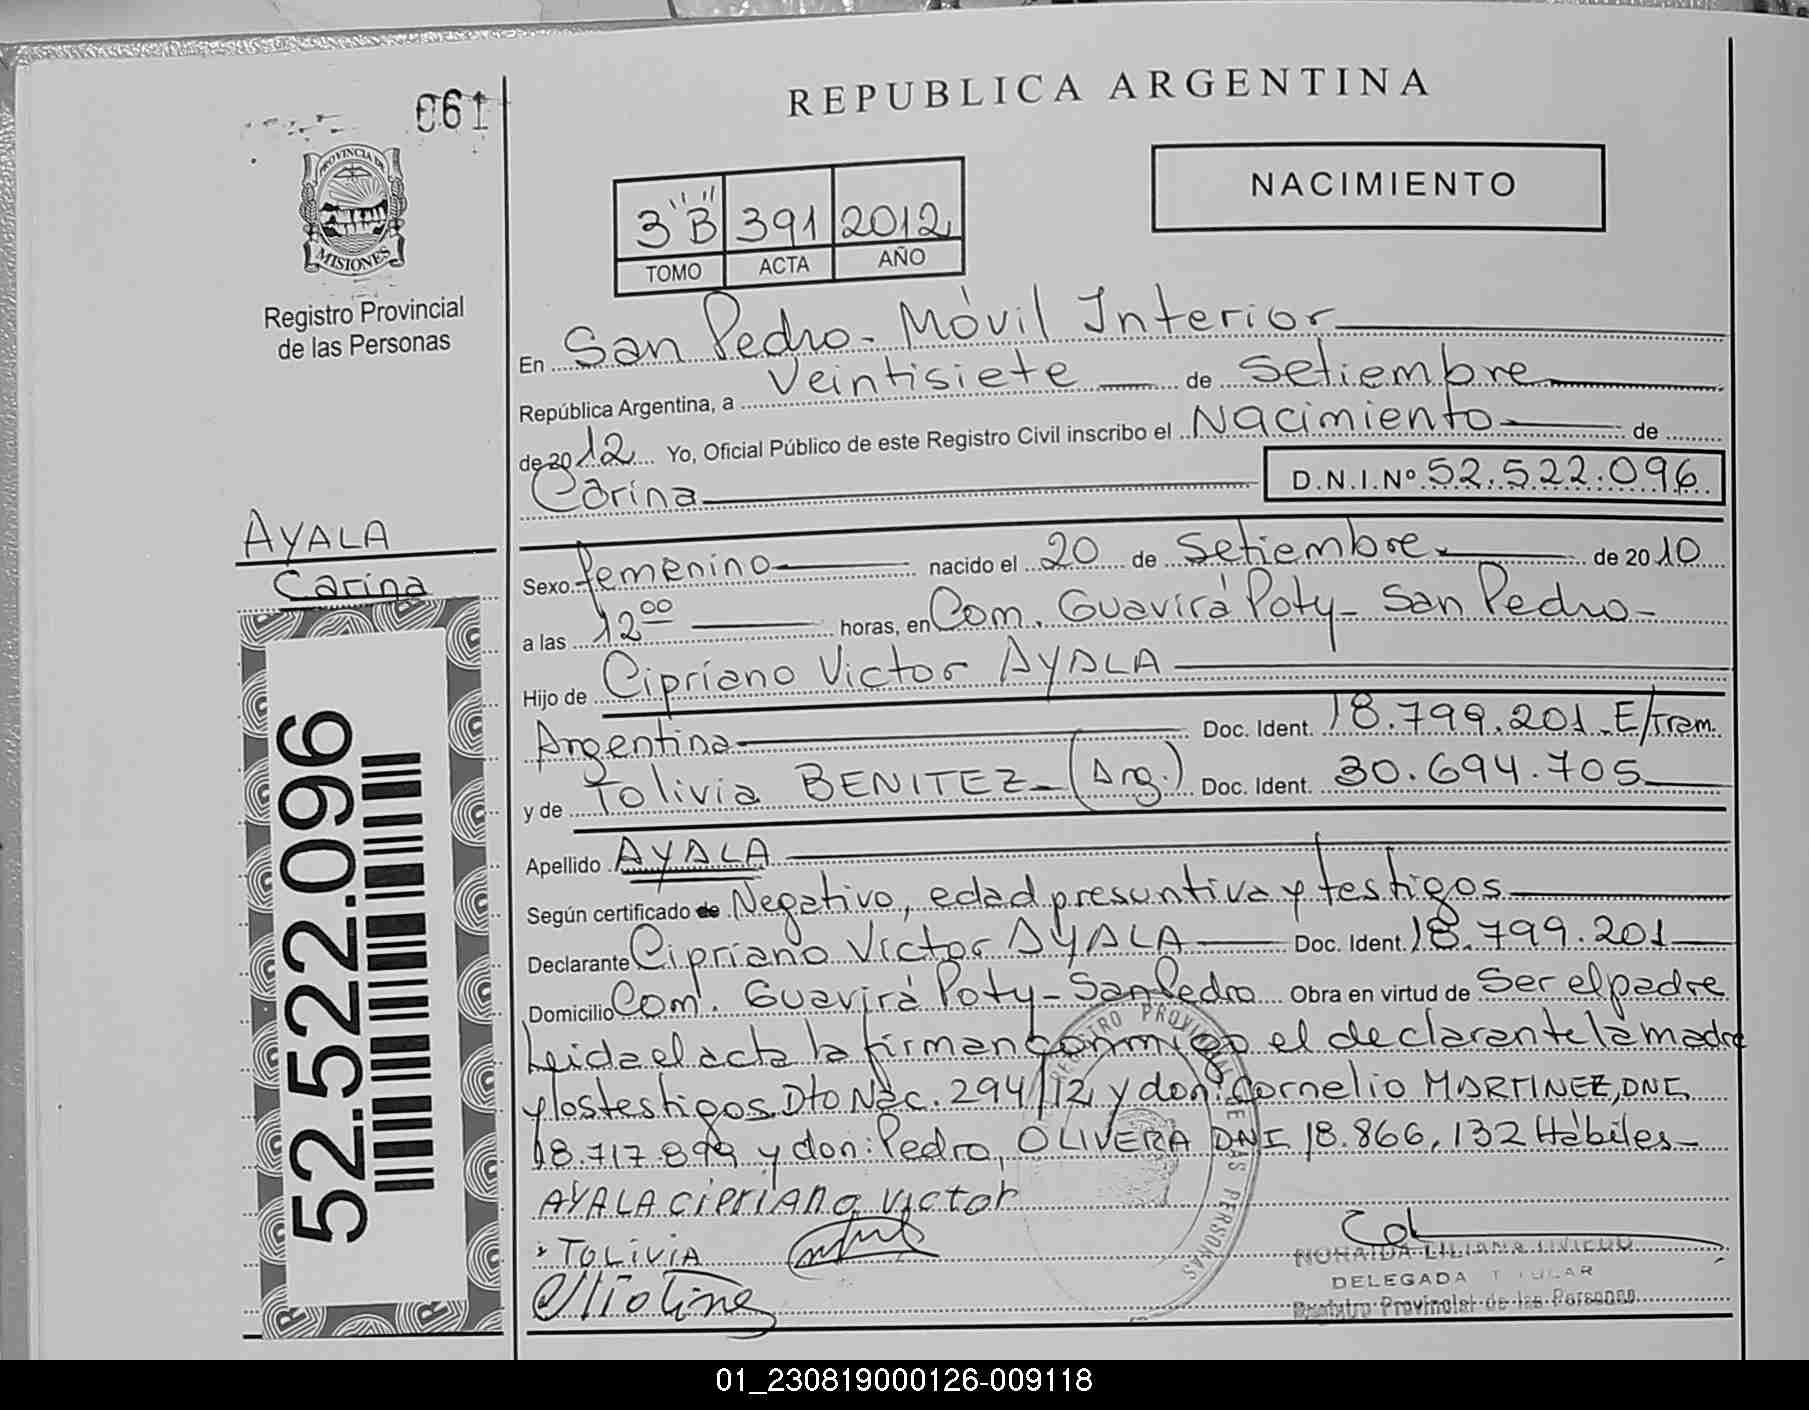 061
PROVINCIA DE
MISIONES
Registro Provincial
de las Personas
REPUBLICA ARGENTINA
NACIMIENTO
3 "B" 391 2012
TOMO ACTA AÑO
En San Pedro - Móvil Interior
República Argentina, a veintisiete de Setiembre
de 2012 Yo, Oficial Público de este Registro Civil inscribo el Nacimiento de
Carina D.N.I.Nº 52.522.096
AYALA
Carina
52.522.096
Sexo femenino nacido el 20 de Setiembre de 2010
a las 12 00 horas, en Com. Guavirá Poty - San Pedro -
Hijo de Cipriano Victor AYALA
Argentina Doc. Ident. 18.799.201 - E/Tram.
y de Tolivia BENITEZ - (Arg.) Doc. Ident. 30.694.705
Apellido AYALA
Según certificado de Negativo, edad presuntiva y testigos
Declarante Cipriano Victor AYALA Doc. Ident. 18.799.201
Domicilio Com. Guavirá Poty - San Pedro Obra en virtud de Ser el padre
Leida el acta la firman conmigo el declarante la madre
y los testigos Dto Nac. 294/12 y don: Cornelio MARTINEZ, DNI
18.717.899 y don: Pedro, OLIVERA DNI 18.866.132 Hábiles -
AYALA CIPRIANO VICTOR
TOLIVIA
REGISTRO PROVINCIAL DE LAS PERSONAS
DELEGADA TITULAR
Registro Provincial de las Personas
01_230819000126-009118